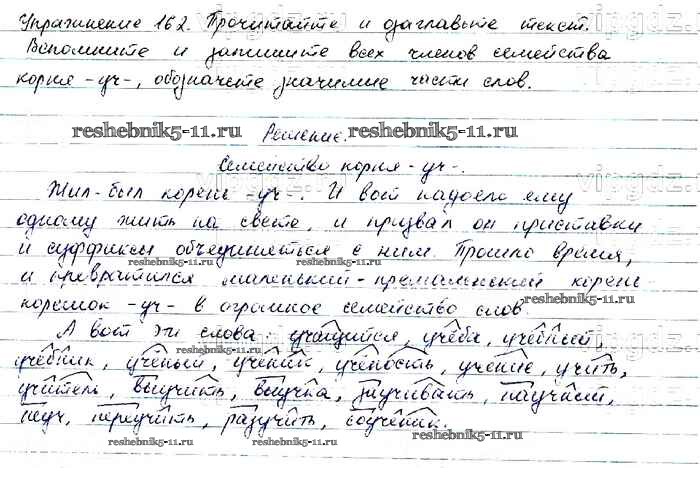 Упражнение 162. Прочитайте и озаглавьте текст.
Вспомните и запишите всех членов семейства
корня -уч-, обозначьте значимые части слов.
reshebnik5-11.ru Решение. reshebnik5-11.ru
Семейство корня -уч-.
Жил-был корень -уч-. И вот надоело ему
одному жить на свете, и призвал он приставки
и суффиксы объединяться с ним. Прошло время,
reshebnik5-11.ru reshebnik5-11.ru
и превратился маленький-премаленький корень
корешок -уч- в огромное семейство слов
reshebnik5-11.ru
А вот эти слова: учащийся, учёба, учебный
учебник, учёный, ученик, учёность, учение, учить,
reshebnik5-11.ru
учитель, выучить, выучка, заучивать, научный,
неуч, переучить, разучить, соученик.
reshebnik5-11.ru reshebnik5-11.ru